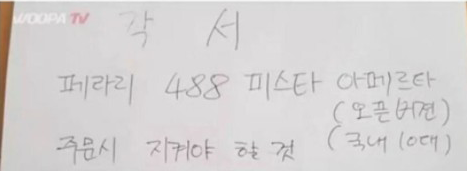 WOOPA TV
각 서
페라리 488 피스타 아페르타
(오픈버젼)
주문시 지켜야 할 것 (국내 10대)